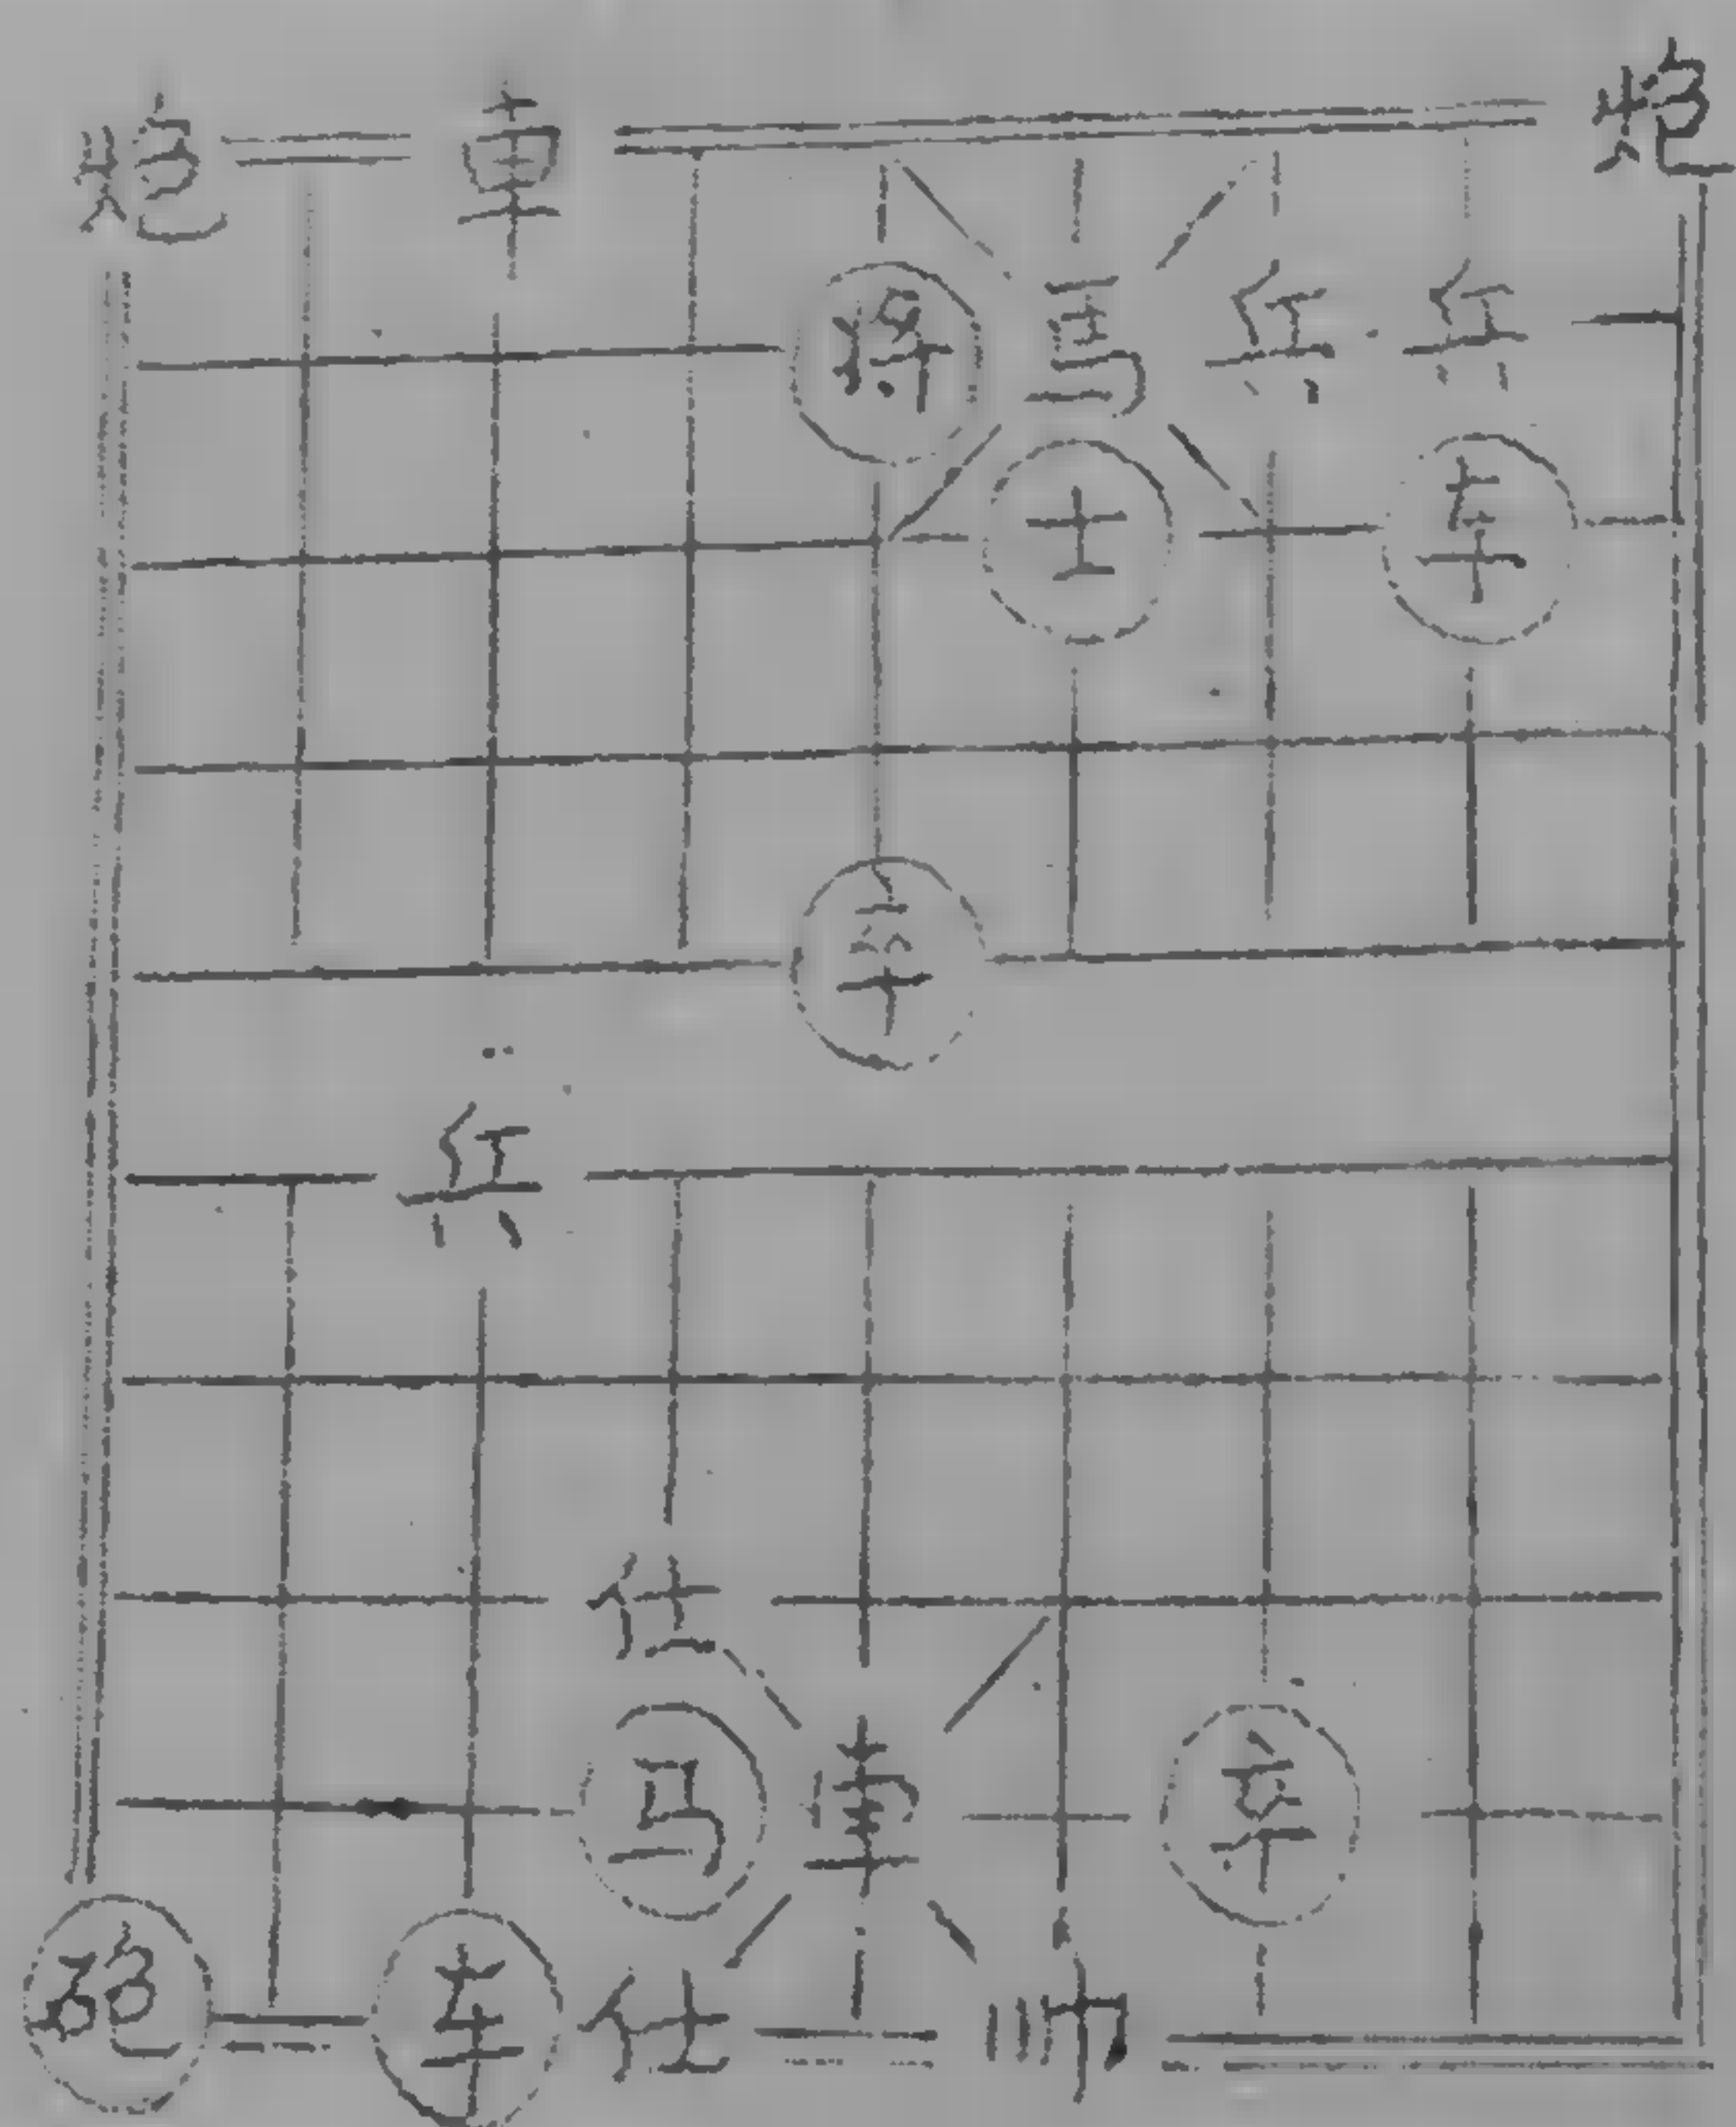 炮 車 炮
将 馬 兵 兵
士 车
卒
兵
仕
马 車 卒
砲 车 仕 帅